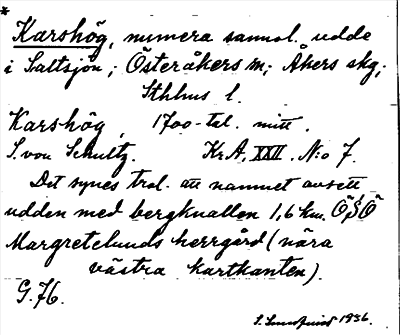 *
Karshög, numera sannol. udde
i Saltsjön; Österåkers sn; Åkers skg;
Sthlms l.
Karshög, 1700-tal. mitt.
S. von Schultz. Kr.A, XXII. N:o 7.
Det synes trol. att namnet avsett
udden med bergknallen 1,6 km. ÖSÖ
Margretelunds herrgård (nära
västra kartkanten).
G.76.
S. Lundquist 1936.